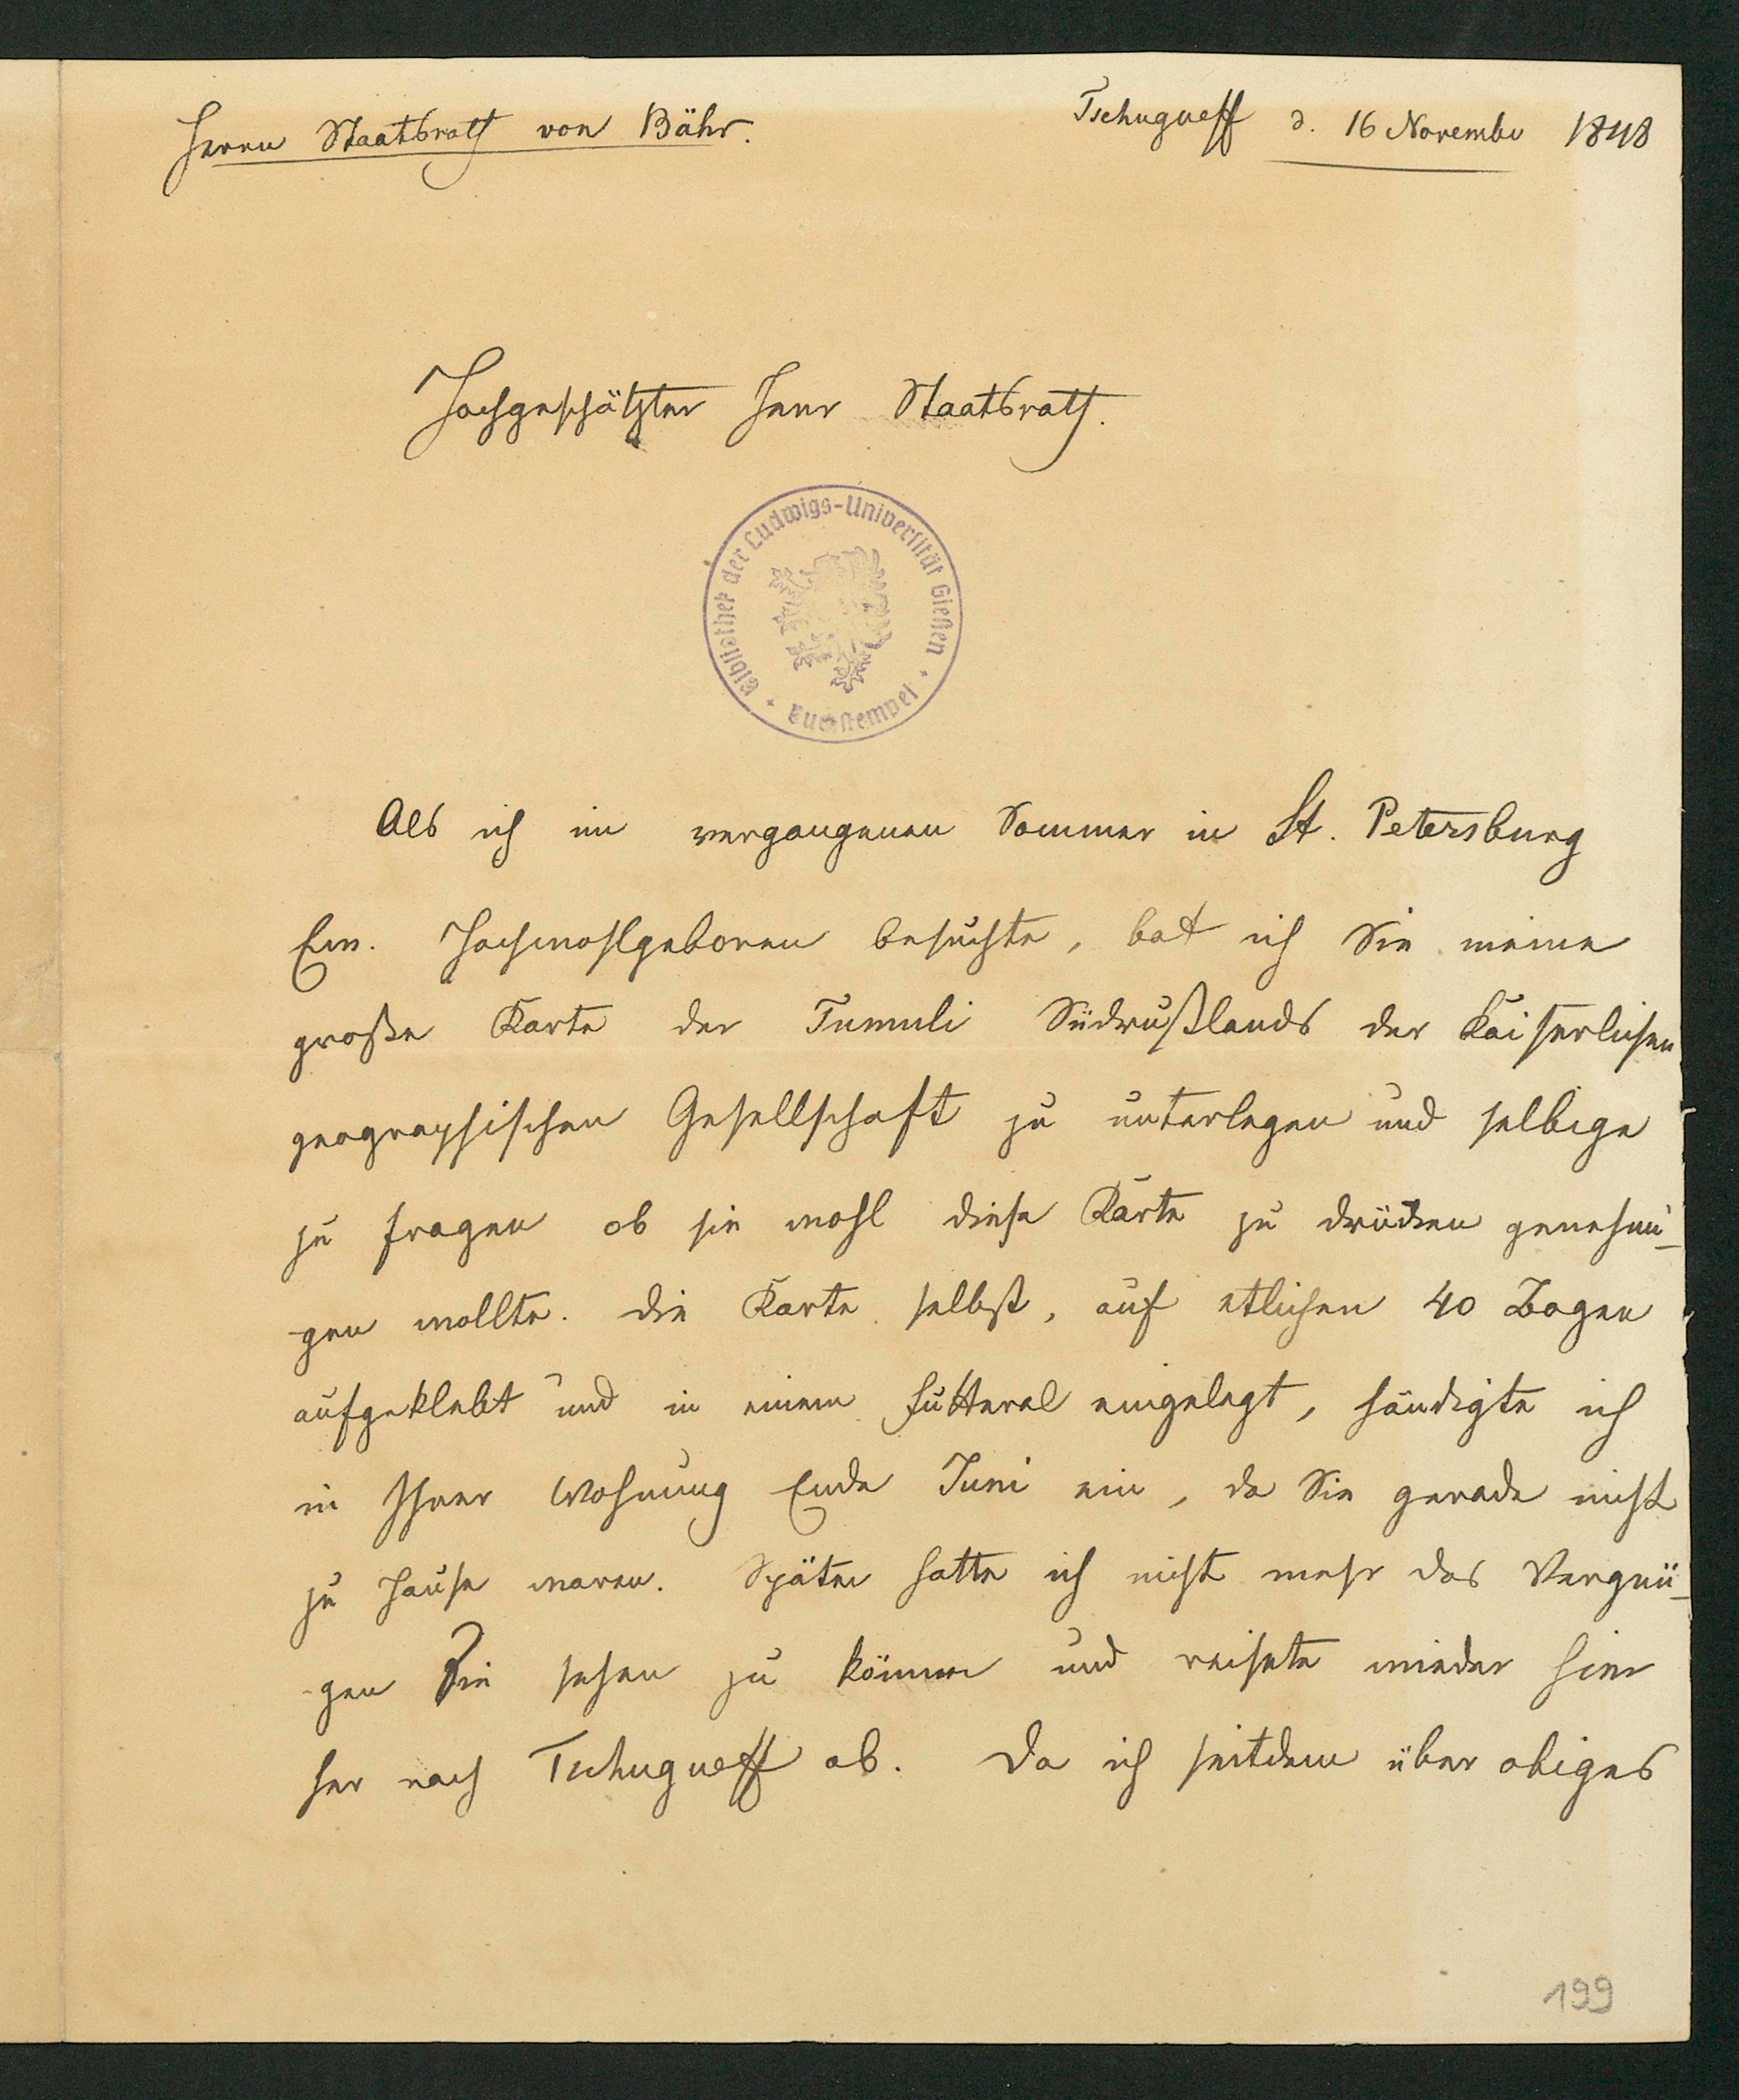 Herrn Staatsrath von Bähr.
Tschugueff d. 16 November 1848
Hochgeschätzter Herr Staatsrath.
Bibliothek der Ludwigs-Universität Gießen
Buchstempel
Als ich im vergangenen Sommer in St. Petersburg
Ew. Hochwohlgeboren besuchte, bat ich Sie meine
große Karte der Tumuli Südrußlands der Kaiserlichen
geographischen Gesellschaft zu unterlegen und selbige
zu fragen ob sie wohl diese Karte zu drücken genehmi-
-gen wollte. Die Karte selbst, auf etlichen 40 Bogen
aufgeklebt und in einem Futteral eingelegt, händigte ich
in Ihrer Wohnung Ende Juni ein, da Sie gerade nicht
zu Hause waren. Später hatte ich nicht mehr das Vergnü-
-gen Sie sehen zu können und reisete wieder hier
her nach Tschugueff ab. Da ich seitdem über obiges
199